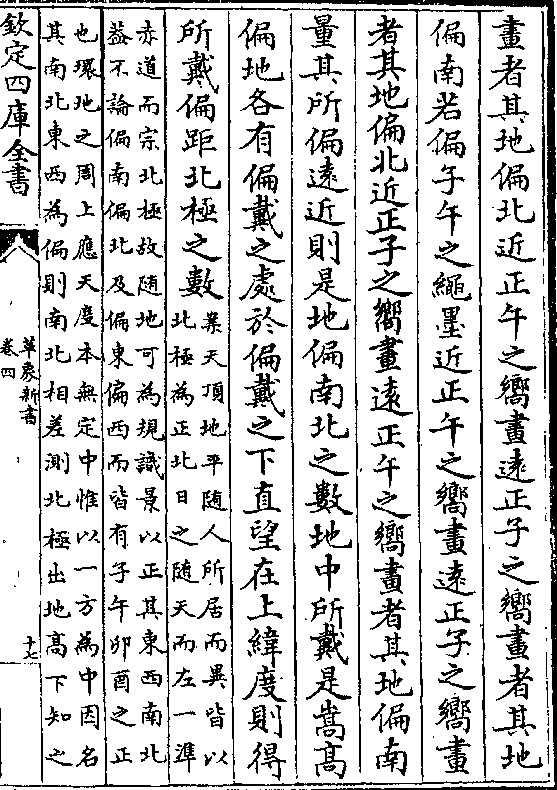 畫者其地偏北近正午之嚮畫逺正子之嚮畫者其地
偏南若偏子午之繩墨近正午之嚮畫逺正子之嚮畫
者其地偏北近正子之嚮畫逺正午之嚮畫者其地偏南
量其所偏逺近則是地偏南北之數地中所戴是嵩髙
偏地各有偏戴之處於偏戴之下直望在上緯度則得
所戴偏距北極之數
案天頂地平随人所居而異皆以
北極為正北日之随天而左一準
赤道而宗北極故随地可為規識景以正其東西南北
葢不論偏南偏北及偏東偏西而皆有子午卯酉之正
也環地之周上應天度本無定中惟以一方為中因名
其南北東西為偏則南北相差測北極出地髙下知之
欽定四庫全書
革象新書
卷四
十七